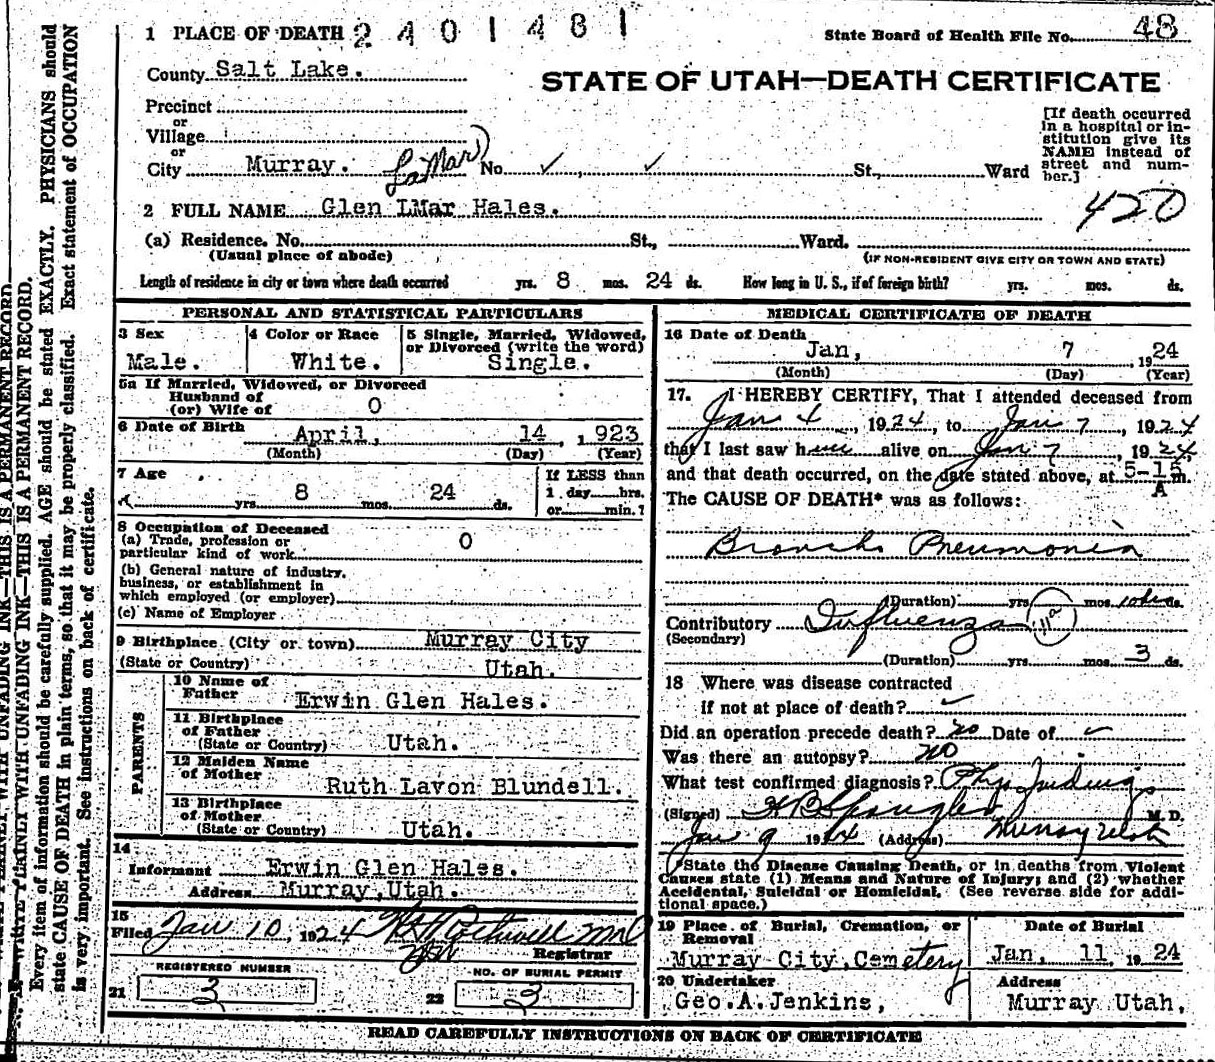 1 PLACE OF DEATH 2401481
State Board of Health File No. 48
County Salt Lake.
STATE OF UTAH—DEATH CERTIFICATE
Precinct
or
Village
or
City Murray. (LaMar) No. ✓, ✓ St., Ward
[If death occurred
in a hospital or in-
stitution give its
NAME instead of
street and num-
ber.]
2 FULL NAME Glen LMar Hales.
420
(a) Residence. No. St., Ward.
(Usual place of abode)
(IF NON-RESIDENT GIVE CITY OR TOWN AND STATE)
Length of residence in city or town where death occurred yrs. 8 mos. 24 ds. How long in U. S., if of foreign birth? yrs. mos. ds.
PERSONAL AND STATISTICAL PARTICULARS
3 Sex
Male.
4 Color or Race
White.
5 Single, Married, Widowed,
or Divorced (write the word)
Single.
5a If Married, Widowed, or Divorced
Husband of
(or) Wife of 0
6 Date of Birth
April, 14, 1923
(Month) (Day) (Year)
7 Age
yrs. 8 mos. 24 ds.
If LESS than
1 day hrs.
or min.?
8 Occupation of Deceased
(a) Trade, profession or
particular kind of work 0
(b) General nature of industry,
business, or establishment in
which employed (or employer)
(c) Name of Employer
9 Birthplace (City or town) Murray City
(State or Country) Utah.
PARENTS
10 Name of
Father Erwin Glen Hales.
11 Birthplace
of Father
(State or Country) Utah.
12 Maiden Name
of Mother
Ruth Lavon Blundell.
13 Birthplace
of Mother
(State or Country) Utah.
14
Informant Erwin Glen Hales.
Address Murray, Utah.
15
Filed Jan 10, 1924
Registrar
REGISTERED NUMBER
21 3
NO. OF BURIAL PERMIT
22 3
MEDICAL CERTIFICATE OF DEATH
16 Date of Death
Jan, 7 1924
(Month) (Day) (Year)
17. I HEREBY CERTIFY, That I attended deceased from
Jan 4, 1924, to Jan 7, 1924
that I last saw h alive on Jan 7, 1924
and that death occurred, on the date stated above, at 5-15 A m.
The CAUSE OF DEATH* was as follows:
Broncho Pneumonia
(Duration) yrs. mos. ds.
Contributory Influenza
(Secondary)
(Duration) yrs. mos. 3 ds.
18 Where was disease contracted
if not at place of death? ✓
Did an operation precede death? no Date of ✓
Was there an autopsy? no
What test confirmed diagnosis? Phys Findings
(Signed) H B Spangler M. D.
Jan 9 1924 (Address) Murray Utah
*State the Disease Causing Death, or in deaths from Violent
Causes state (1) Means and Nature of Injury; and (2) whether
Accidental, Suicidal or Homicidal. (See reverse side for addi-
tional space.)
19 Place of Burial, Cremation, or
Removal
Murray City, Cemetery
Date of Burial
Jan, 11, 1924
20 Undertaker
Geo. A. Jenkins,
Address
Murray Utah,
READ CAREFULLY INSTRUCTIONS ON BACK OF CERTIFICATE
WRITE PLAINLY WITH UNFADING INK—THIS IS A PERMANENT RECORD.
Every item of information should be carefully supplied. AGE should be stated EXACTLY. PHYSICIANS should
state CAUSE OF DEATH in plain terms, so that it may be properly classified. Exact statement of OCCUPATION
is very important. See instructions on back of certificate.